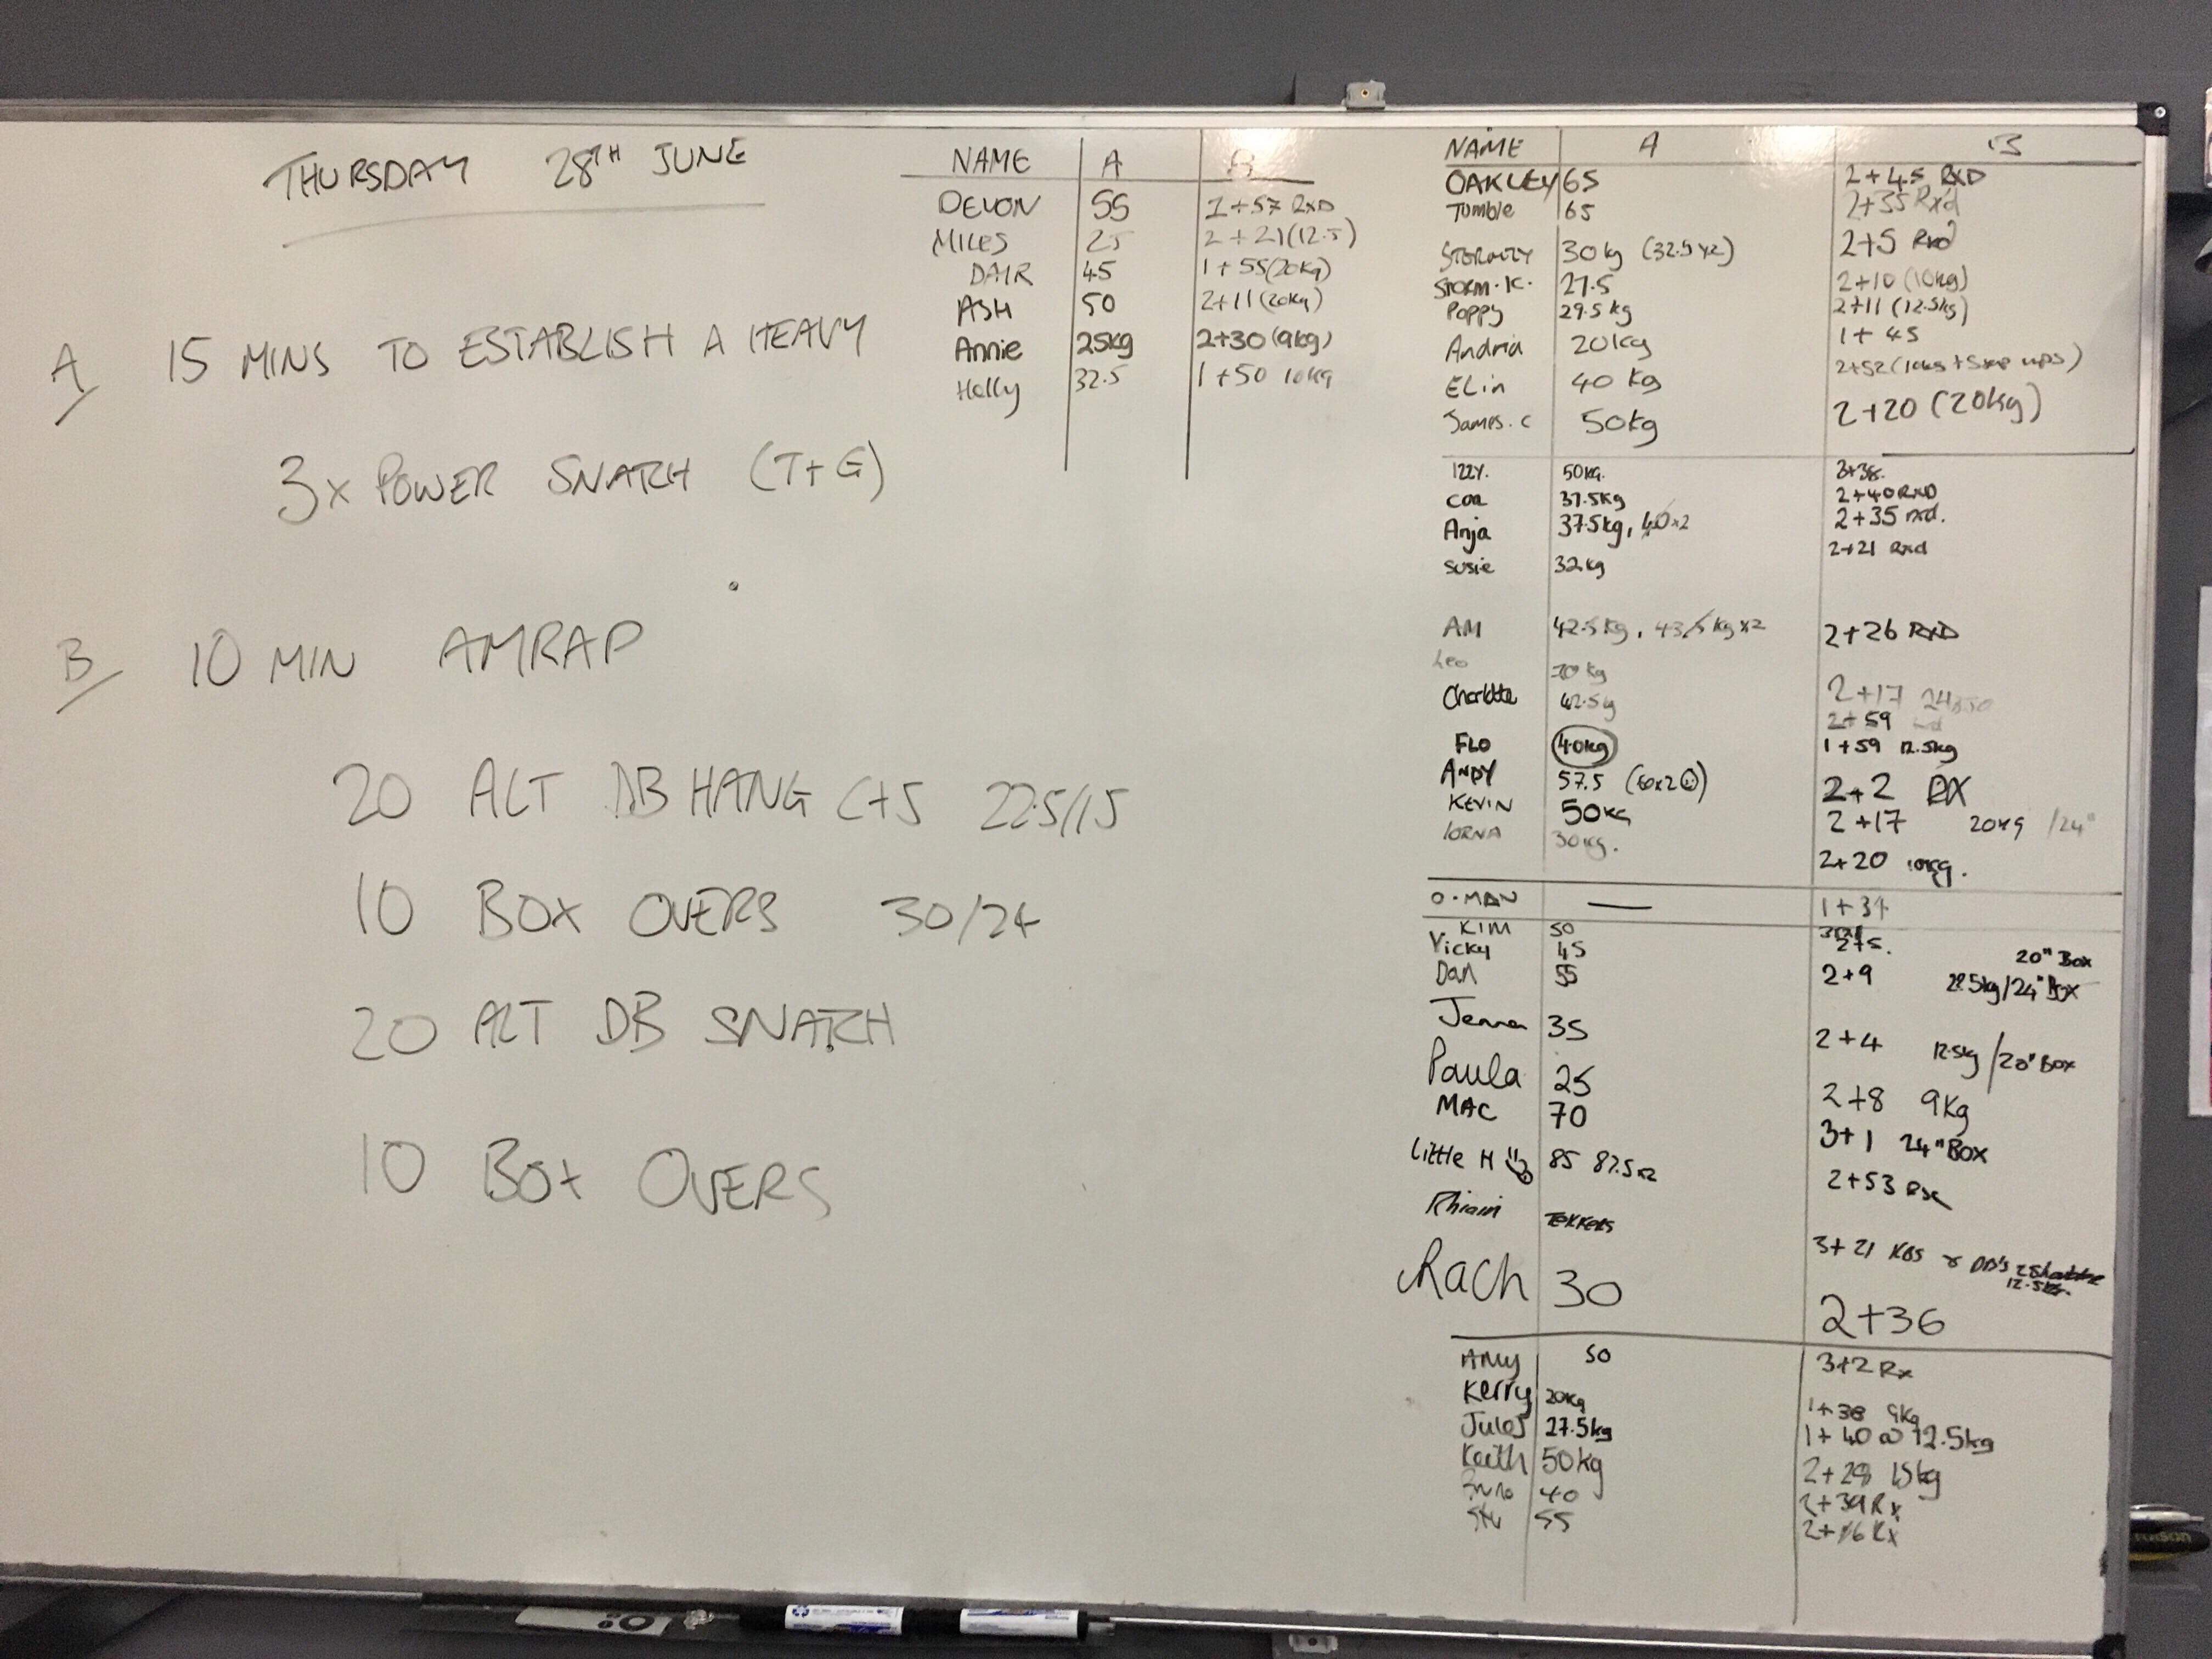 THURSDAY 28TH JUNE
A 15 MINS TO ESTABLISH A HEAVY
3x POWER SNATCH (T+G)
B 10 MIN AMRAP
20 ALT DB HANG C+J 22.5/15
10 BOX OVERS 30/24
20 ALT DB SNATCH
10 BOX OVERS
NAME A B
DEVON 55 1+57 RXD
MILES 25 2+21 (12.5)
DAIR 45 1+55 (20kg)
ASH 50 2+11 (20kg)
Annie 25kg 2+30 (9kg)
Holly 32.5 1+50 10kg
NAME A B
OAKLEY 65 2+45 RXD
Tumble 65 2+35 Rxd
30kg (32.5x2) 2+5 Rxd
STORM.K. 27.5 2+10 (10kg)
Poppy 29.5kg 2+11 (12.5kg)
Andria 20kg 1+45
ELin 40kg 2+52 (10kg + Step ups)
James.C 50kg 2+20 (20kg)
IZZY. 50kg.
37.5kg 2+40 RXD
Anja 37.5kg, 40x2 2+35 rxd.
Susie 32kg 2+21 Rxd
AM 42.5kg, 43.5kgx2 2+26 RXD
Leo 70kg 2+17
Charlotte 42.5kg 2+59
FLO 40kg 1+59 12.5kg
ANDY 57.5 (60x2) 2+2 RX
KEVIN 50kg 2+17 20kg /24"
LORNA 30kg. 2+20 10kg.
O-MAN — 1+34
KIM 50
Vicky 45 2+5. 20" Box
Dan 55 2+9 22.5kg/24" Box
Jenna 35 2+4 12.5kg/20" Box
Paula 25 2+8 9Kg
MAC 70 3+1 24" BOX
Little H 85 87.5x2 2+53 Rx
TEKKERS 3+21 KBS & DB's 12.5kg.
Rach 30 2+36
Amy 50 3+2 Rx
Kerry 20kg 1+38 9kg
Jules 27.5kg 1+40 @ 12.5kg
Keith 50kg 2+28 15kg
40 2+39 Rx
Stu 55 2+16 Rx